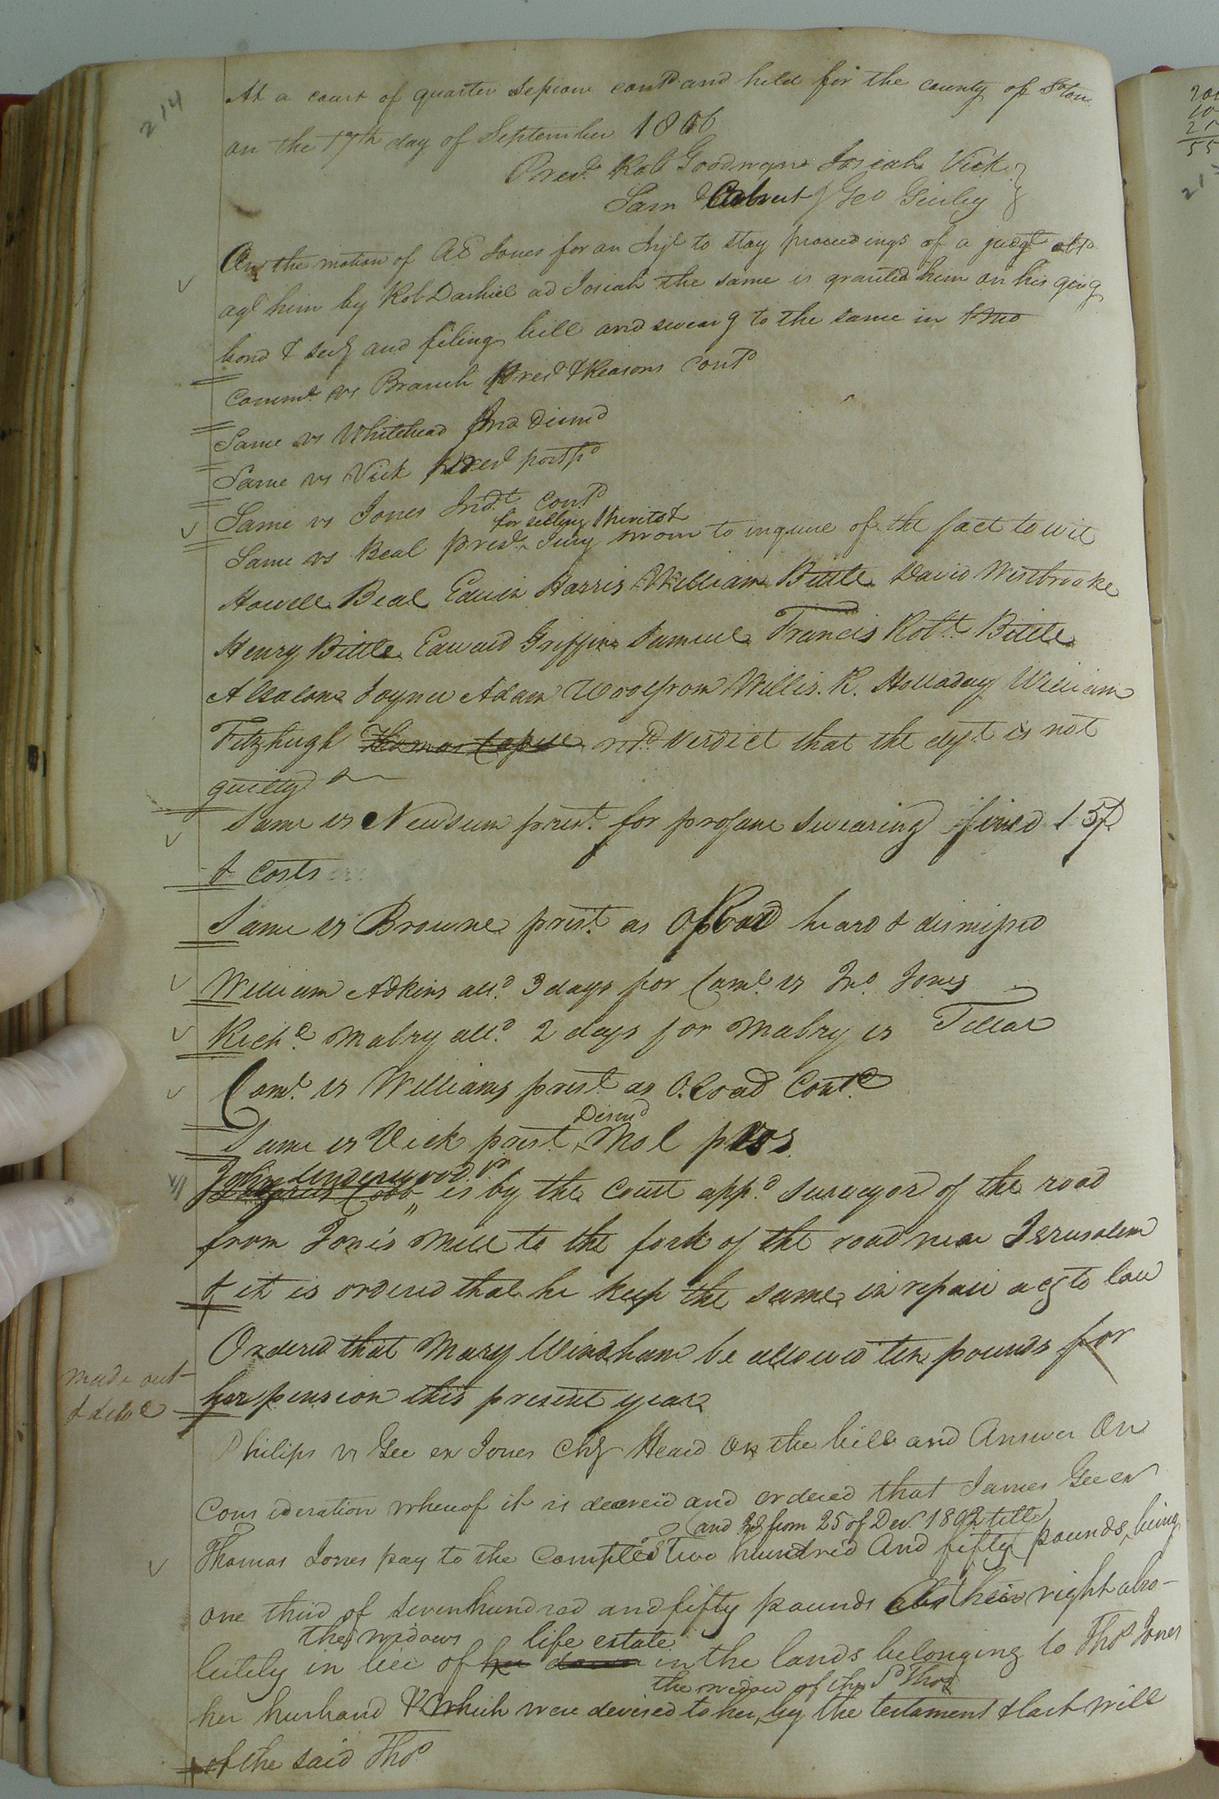 214
At a court of quarter Session contd and held for the county of Soton
on the 17th day of September 1806
Prest. Rob Goodwyn Josiah Vick
Sam Calvert Geo Gurley
On the motion of AE Jones for an Inj to stay proceedings of a judgt obtd
agt him by Rob Dashiel ad Josiah the same is granted him on his givg
bond & secy and filing bill and swearg to the same in
Commt vs Branch prest & Reasons contd
Same vs Whitehead Ind dismd
Same vs Vick prest postpd
Same vs Jones Indt contd
for selling
Same vs Beal prest. Jury sworn to inquire of the fact to wit
Howell Beal Edwin Harris William Bittle David Westbrooke
Henry Bittle Edward Griffin Samuel Francis Robt. Bittle
Absalom Joyner Adam Woolfrom Willis. K. Holladay William
Fitzhugh Thomas retd. Verdict that the deft is not
guilty
Same vs Newsum prest. for profane swearing fined 1.5/
& costs
Same vs Browne prest. as O Road heard & dismissed
William Adkins alld. 3 days for Comt. vs Jno. Jones
Richd. Mabry alld. 2 days for Mabry vs Tillar
Comt. vs Williams prest. as O. Road Contd.
Dismd
Same vs Vick prest. Mol pros
John Underwood Jr
is by the court appd. surveyor of the road
from Jones Mill to the fork of the road near Jerusalem
& it is ordered that he keep the same in repair acg to law
Ordered that Mary Windham be allowed ten pounds for
her pension this present year
made out
& deld
Philips vs Gee ex Jones Chy Heard On the bill and Answer On
Consideration whereof it is decreed and ordered that James Gee ex
(and Int from 25 of Decr. 1802 till)
Thomas Jones pay to the Complts two hundred And fifty pounds, being
one third of seven hundred and fifty pounds their right abso-
the widows life estate
lutely in lieu of her dower in the lands belonging to Thos Jones
the widow of the Sd Thos
her husband & which were devised to her, by the testament & last will
of the said Thos